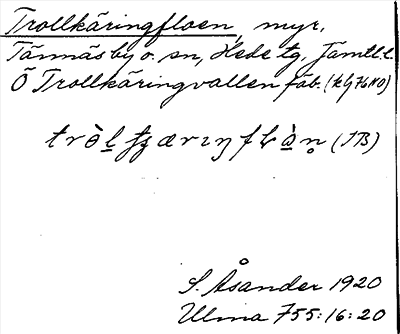 Trollkäringfloen, myr,
Tännäs by o. sn, Hede tg, Jämtl. l.
Ö Trollkäringvallen fäb. (kg 76 NO)
(JB)
S. Åsander 1920
Ulma 755:16:20